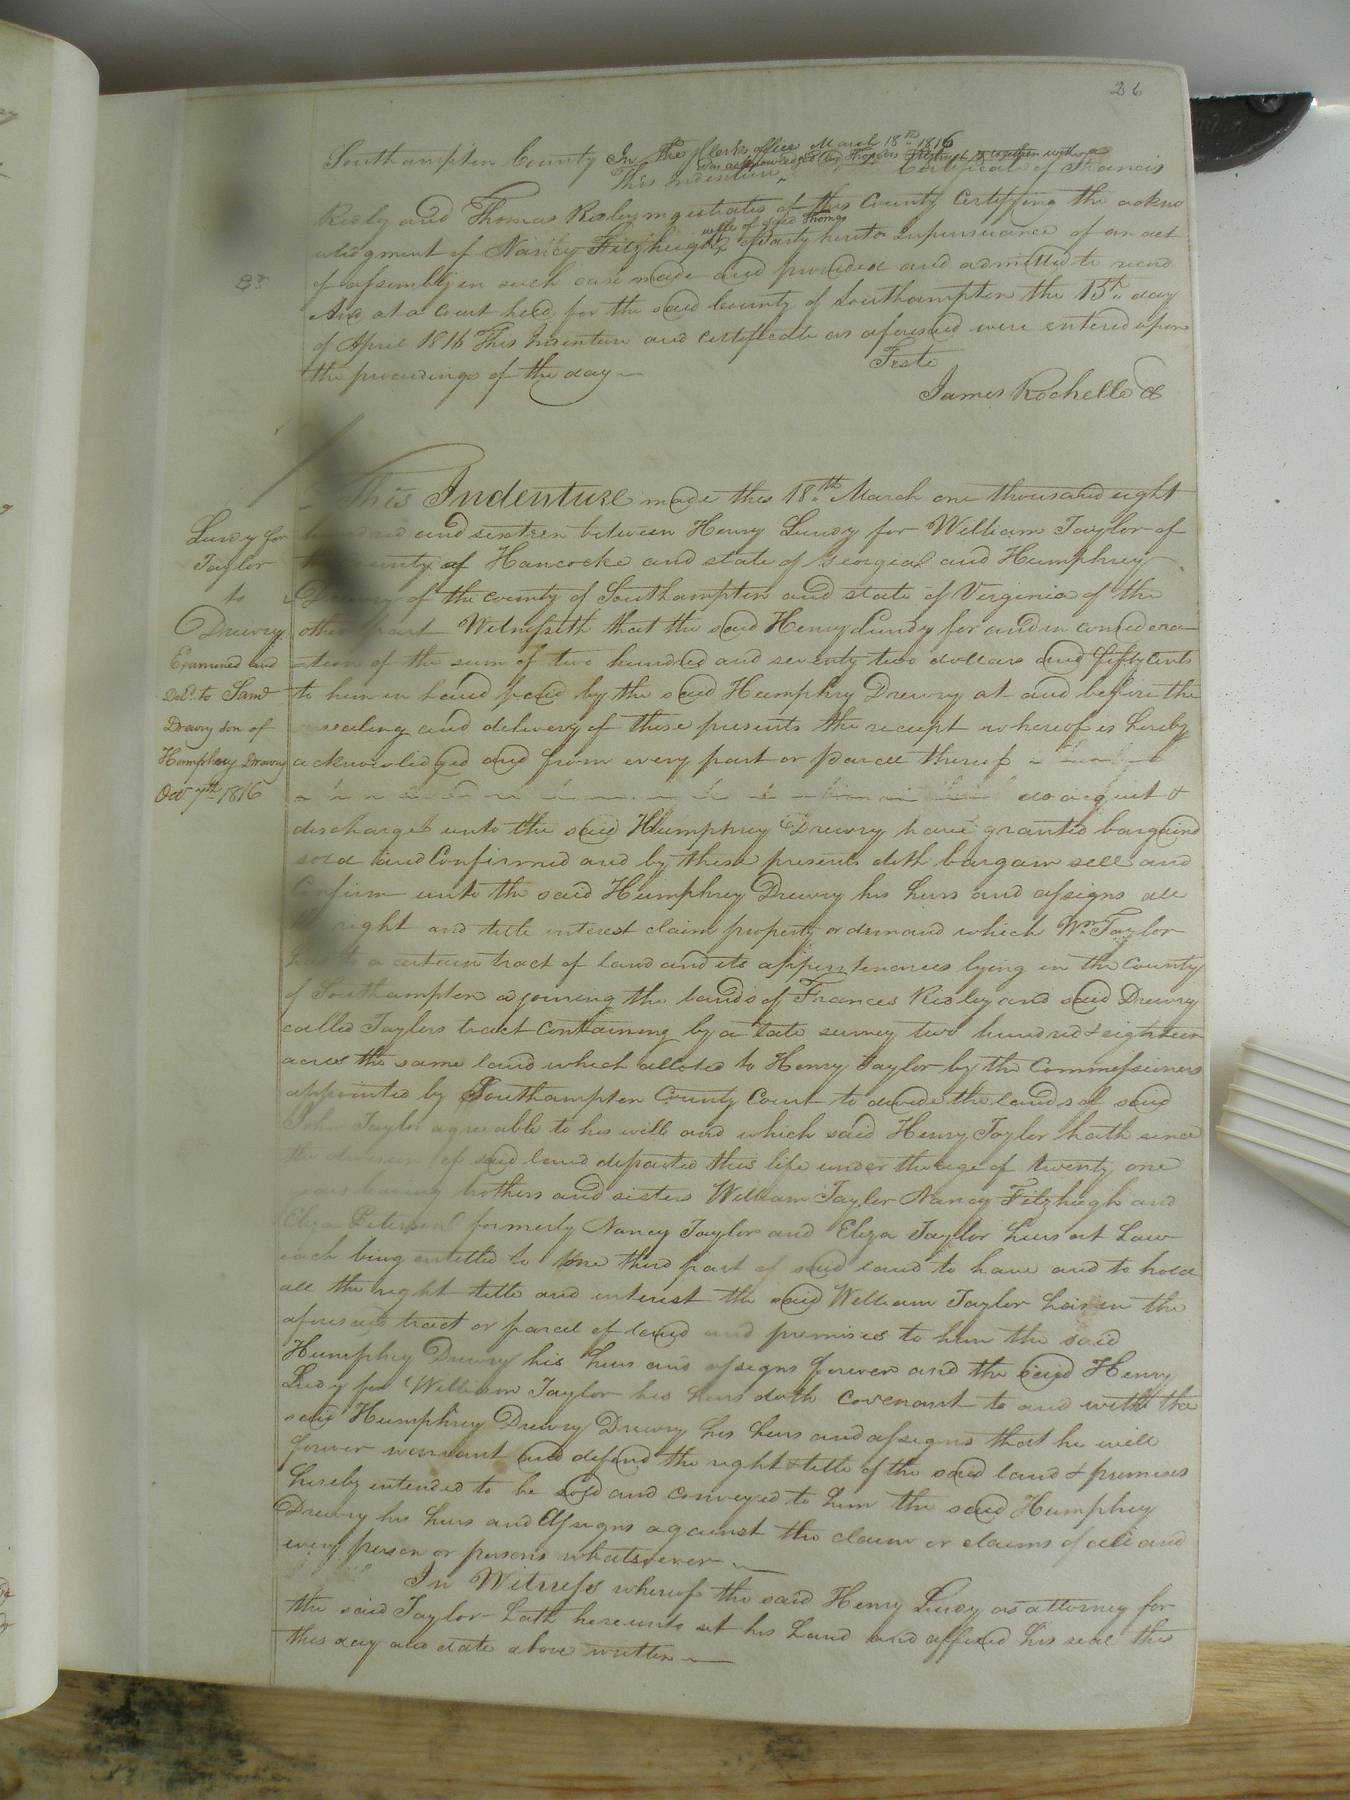 26
Southampton County In the Clerks office March 18th 1816
This Indenture was acknowledged by Thomas Fitzhugh & together with a Certificate of Francis
Ridley and Thomas Ridley magistrates of this County Certifying the ackno
wledgment of Nancy Fitzhugh wife of said Thomas party hereto in pursuance of an act
of assembly in such case made and provided and admitted to record
And at a Court held for the said County of Southampton the 15th day
of April 1816 This Indenture and certificate as aforesaid were entered upon
the proceedings of the day
Teste
James Rochelle
Lundy for
Taylor
to
Drewry
Examined and
Deld. to Saml
Drewry son of
Humphrey Drewry
Oct 7th 1816
This Indenture made this 18th March one thousand eight
hundred and sixteen between Henry Lundy for William Taylor of
the county of Hancocke and state of Georgia and Humphrey
Drewry of the county of Southampton and state of Virginia of the
other part Witnesseth that the said Henry Lundy for and in considera
tion of the sum of two hundred and seventy two dollars and fifty cents
to him in hand paid by the said Humphry Drewry at and before the
ensealing and delivery of these presents the receipt whereof is hereby
acknowledged and from every part or parcel thereof
do acquit &
discharge unto the said Humphrey Drewry have granted bargained
sold and Confirmed and by these presents doth bargain sell and
Confirm unto the said Humphrey Drewry his heirs and assigns all
the right and title interest claim property or demand which Wm. Taylor
has to a certain tract of land and its appurtenances lying in the County
of Southampton adjoining the lands of Frances Ridley and said Drewry
called Taylors tract Containing by a late survey two hundred & eighteen
acres the same land which alloted to Henry Taylor by the Commissioners
appointed by Southampton County Court to devide the lands of said
John Taylor agreeable to his will and which said Henry Taylor hath since
the division of said land departed this life under the age of twenty one
years leaving brothers and sisters William Taylor Nancy Fitzhugh and
Eliza Peterson formerly Nancy Taylor and Eliza Taylor heirs at Law
each being entitled to one third part of said land to have and to hold
all the right title and interest the said William Taylor has in the
aforesaid tract or parcel of land and premises to him the said
Humphrey Drewry his heirs and assigns forever and the said Henry
Ludy for William Taylor his heirs doth Covenant to and with the
said Humphrey Drewry Drewry his heirs and assigns that he will
forever warrant and defend the right & title of the said land & premises
hereby intended to be sold and conveyed to him the said Humphrey
Drewry his heirs and Assigns against the claim or claims of all and
every person or persons whatsoever
In Witness whereof the said Henry Lundy as attorney for
the said Taylor hath hereunto set his hand and affixed his seal this
this day and date above written